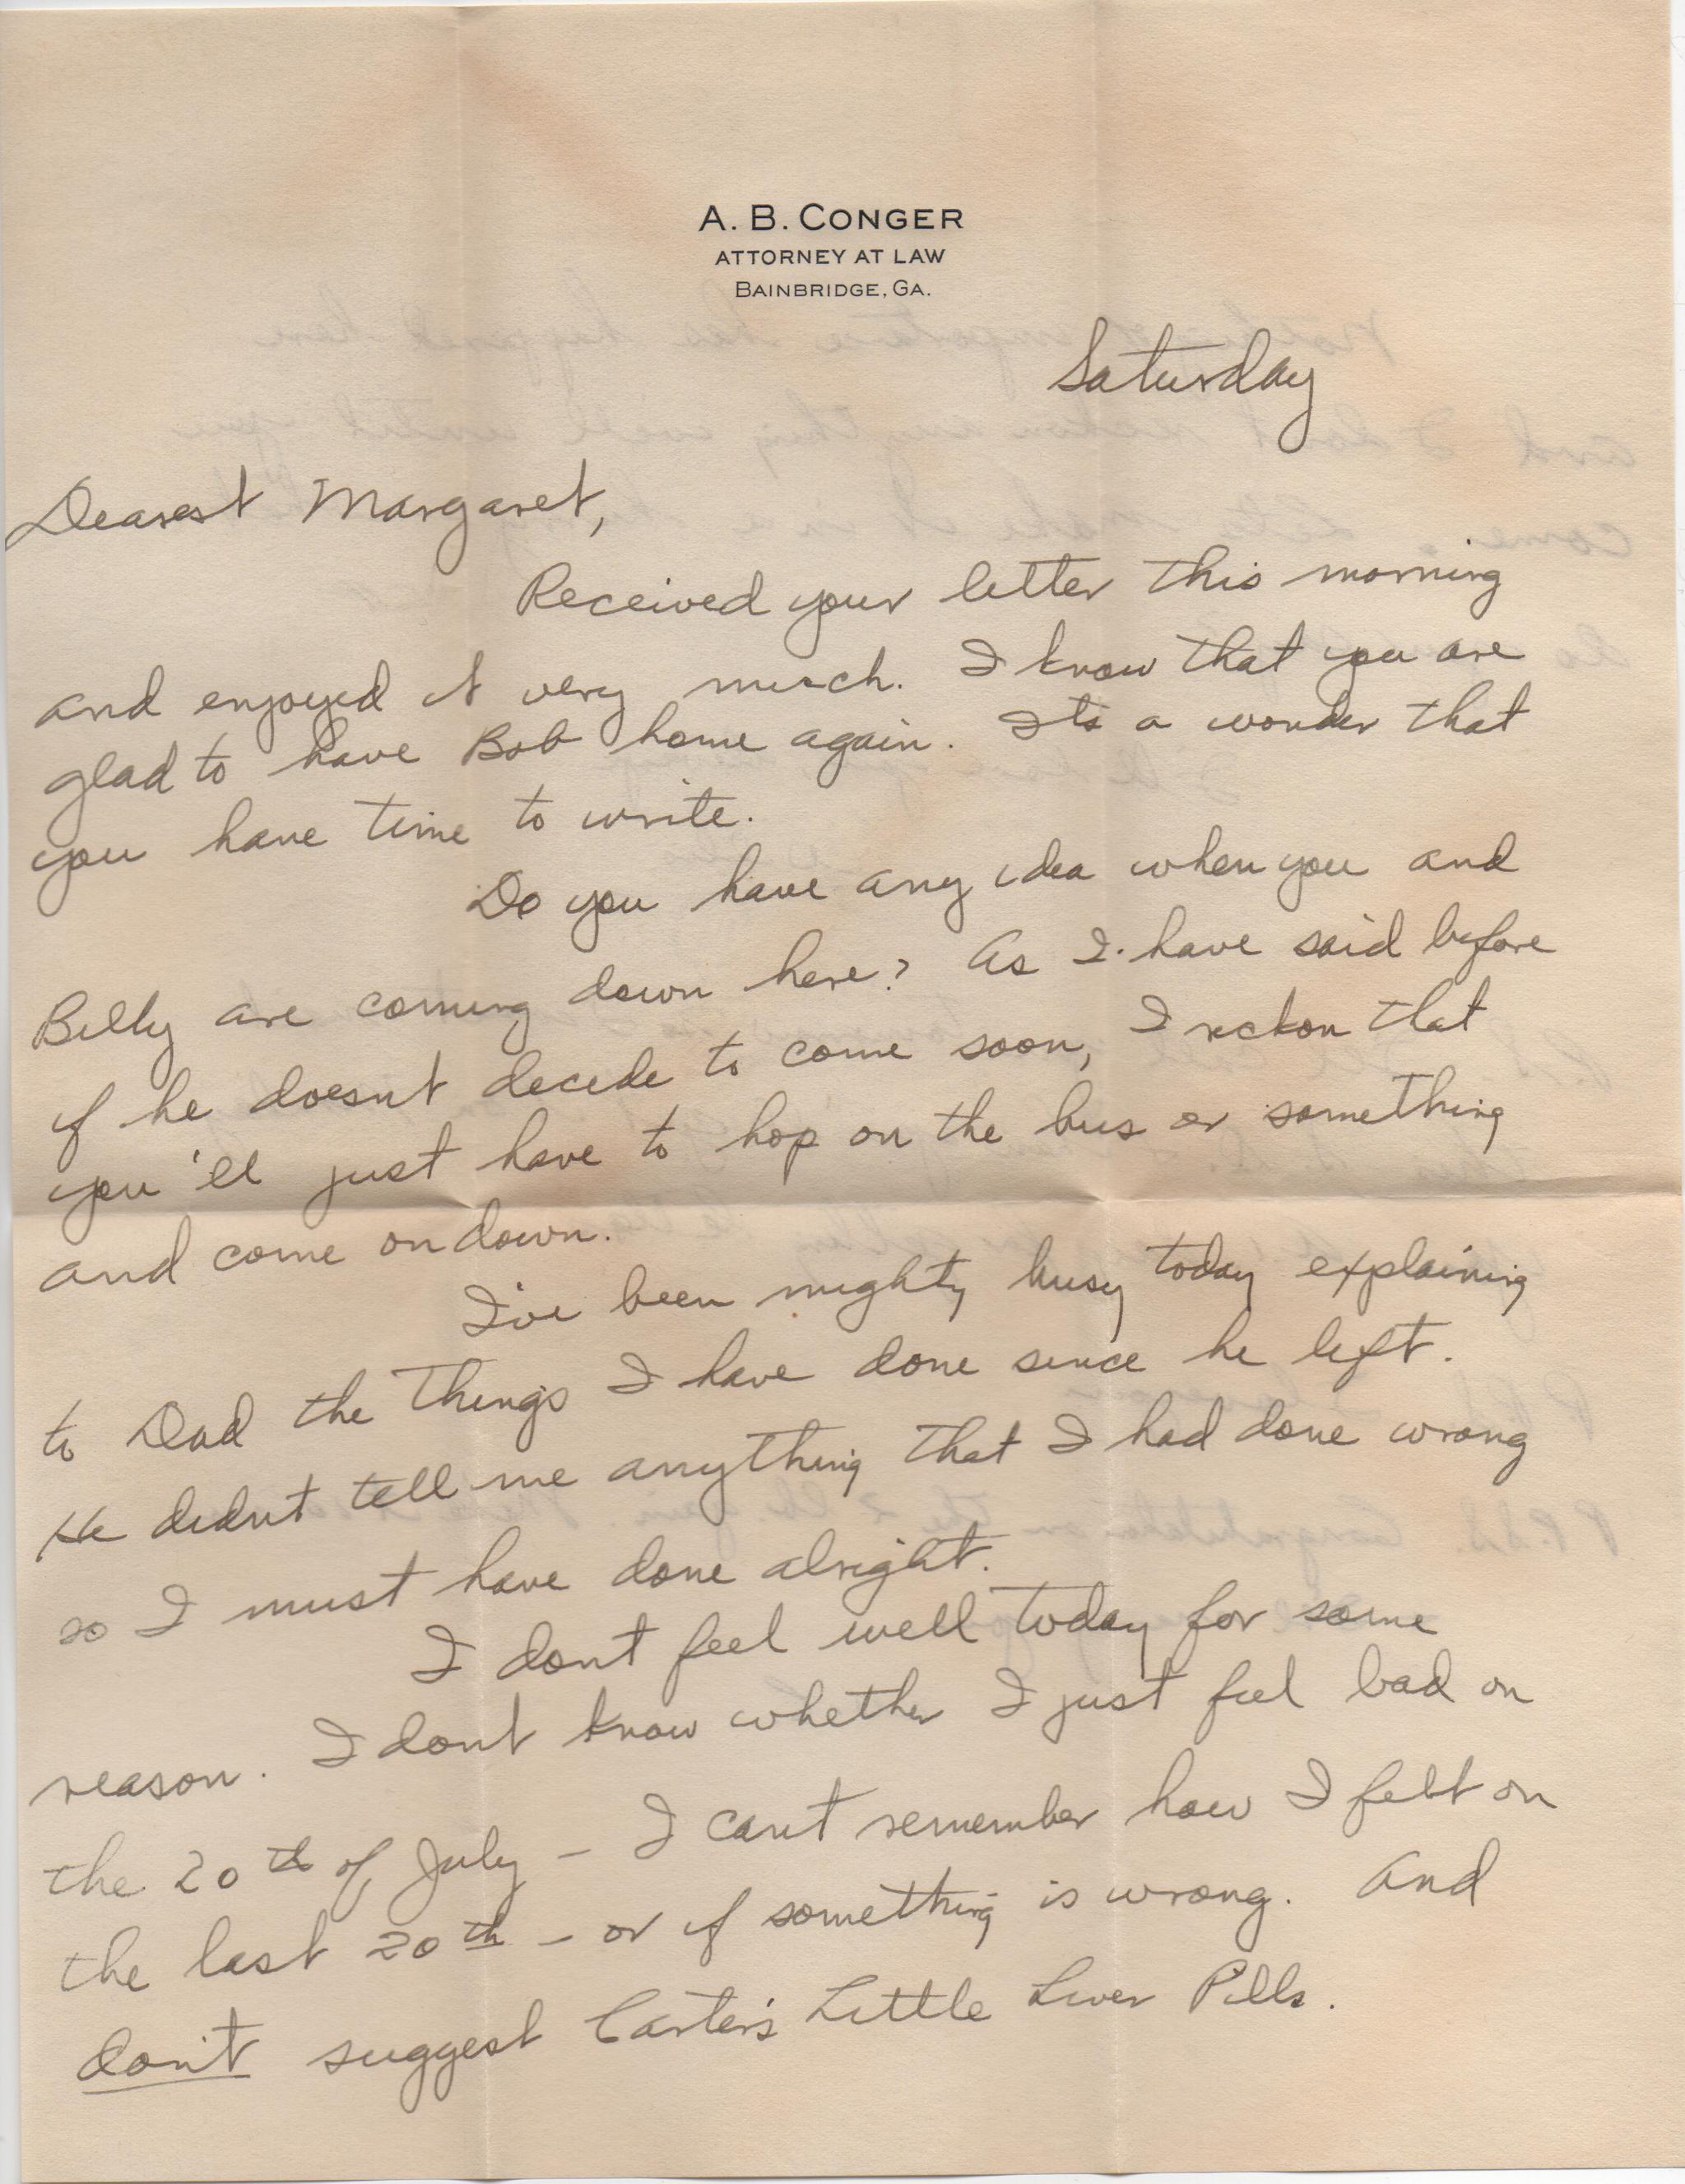 A. B. CONGER
ATTORNEY AT LAW
BAINBRIDGE, GA.
Saturday
Dearest Margaret,
Received your letter this morning
and enjoyed it very much. I know that you are
glad to have Bob home again. Its a wonder that
you have time to write.
Do you have any idea when you and
Billy are coming down here? As I have said before
if he doesnt decide to come soon, I reckon that
you'll just have to hop on the bus or something
and come on down.
I've been mighty busy today explaining
to Dad the things I have done since he left.
He didnt tell me anything that I had done wrong
so I must have done alright.
I dont feel well today for some
reason. I dont know whether I just feel bad on
the 20th of July – I cant remember how I felt on
the last 20th – or if something is wrong. And
don't suggest Carter's Little Liver Pills.